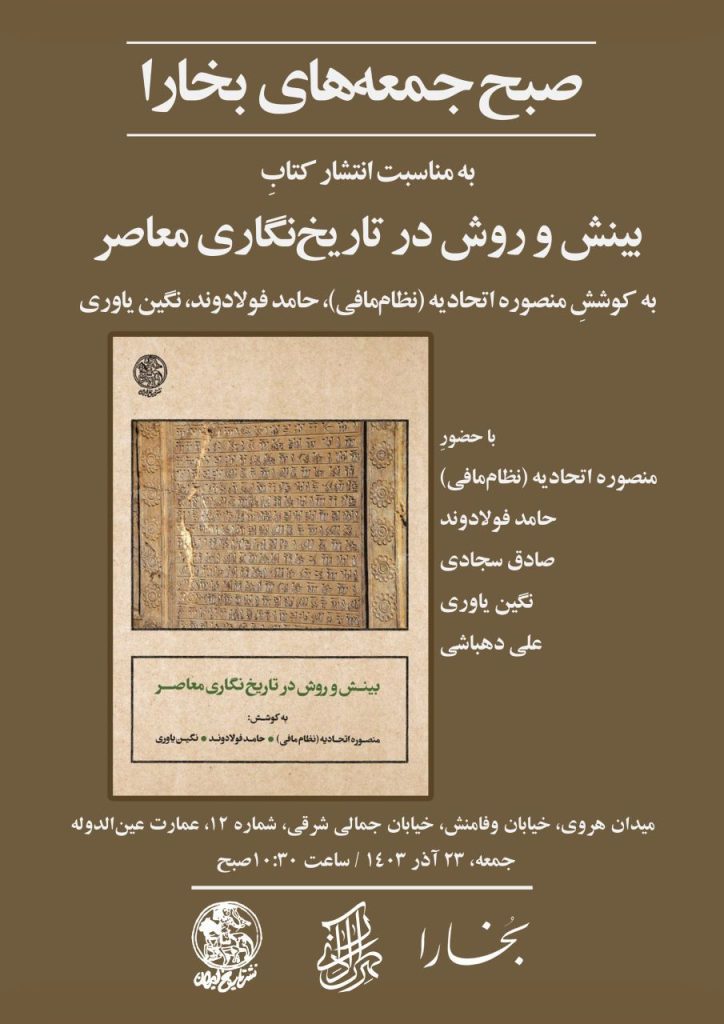 صبح جمعه‌های بخارا
به مناسبت انتشار کتابِ
بینش و روش در تاریخ‌نگاری معاصر
به کوششِ منصوره اتحادیه (نظام‌مافی)، حامد فولادوند، نگین یاوری
نشر تاریخ ایران
با حضورِ
منصوره اتحادیه (نظام‌مافی)
حامد فولادوند
صادق سجادی
نگین یاوری
علی دهباشی
بینش و روش در تاریخ نگاری معاصر
به کوشش:
منصوره اتحادیه (نظام مافی) • حامد فولادوند • نگین یاوری
میدان هروی، خیابان وفامنش، خیابان جمالی شرقی، شماره ۱۲، عمارت عین‌الدوله
جمعه، ۲۳ آذر ۱۴۰۳ / ساعت ۱۰:۳۰صبح
بُخارا
نشر تاریخ ایران